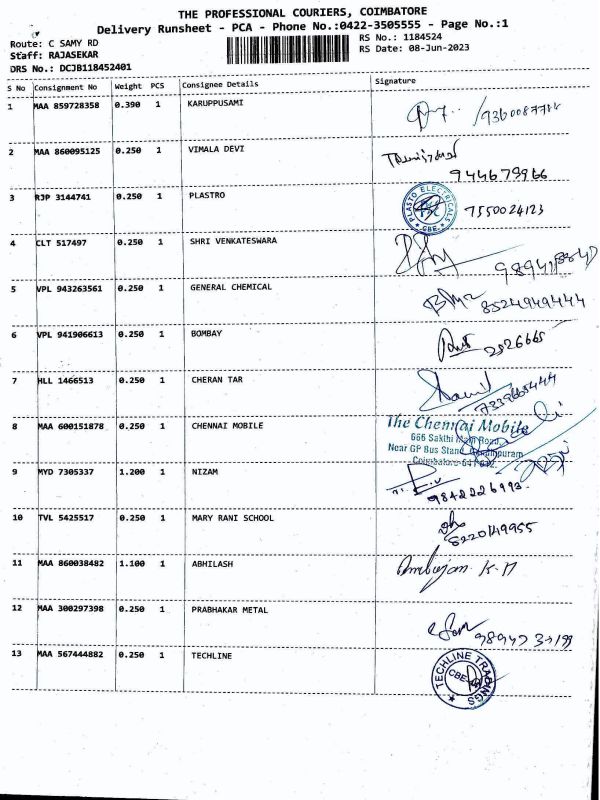 THE PROFESSIONAL COURIERS, COIMBATORE
Delivery Runsheet - PCA - Phone No.:0422-3505555 - Page No.:1
Route: C SAMY RD
RS No.: 1184524
Staff: RAJASEKAR
RS Date: 08-Jun-2023
DRS No.: DCJB118452401
S No Consignment No Weight PCS Consignee Details Signature
1 MAA 859728358 0.390 1 KARUPPUSAMI
2 MAA 860095125 0.250 1 VIMALA DEVI
944679966
3 RJP 3144741 0.250 1 PLASTRO
PLASTO ELECTRICALS CBE. 7550024123
4 CLT 517497 0.250 1 SHRI VENKATESWARA
5 VPL 943263561 0.250 1 GENERAL CHEMICAL
8524949444
6 VPL 941906613 0.250 1 BOMBAY
2526665
7 HLL 1466513 0.250 1 CHERAN TAR
7339665444
8 MAA 600151878 0.250 1 CHENNAI MOBILE
The Chennai Mobile
666 Sakthi Main Road,
Near GP Bus Stand, Ganapuram
Coimbatore-641 012.
9 MYD 7305337 1.200 1 NIZAM
9842226993
10 TVL 5425517 0.250 1 MARY RANI SCHOOL
8220149955
11 MAA 860038482 1.100 1 ABHILASH
K.M
12 MAA 300297398 0.250 1 PRABHAKAR METAL
13 MAA 567444882 0.250 1 TECHLINE
TECHLINE TRADINGS CBE